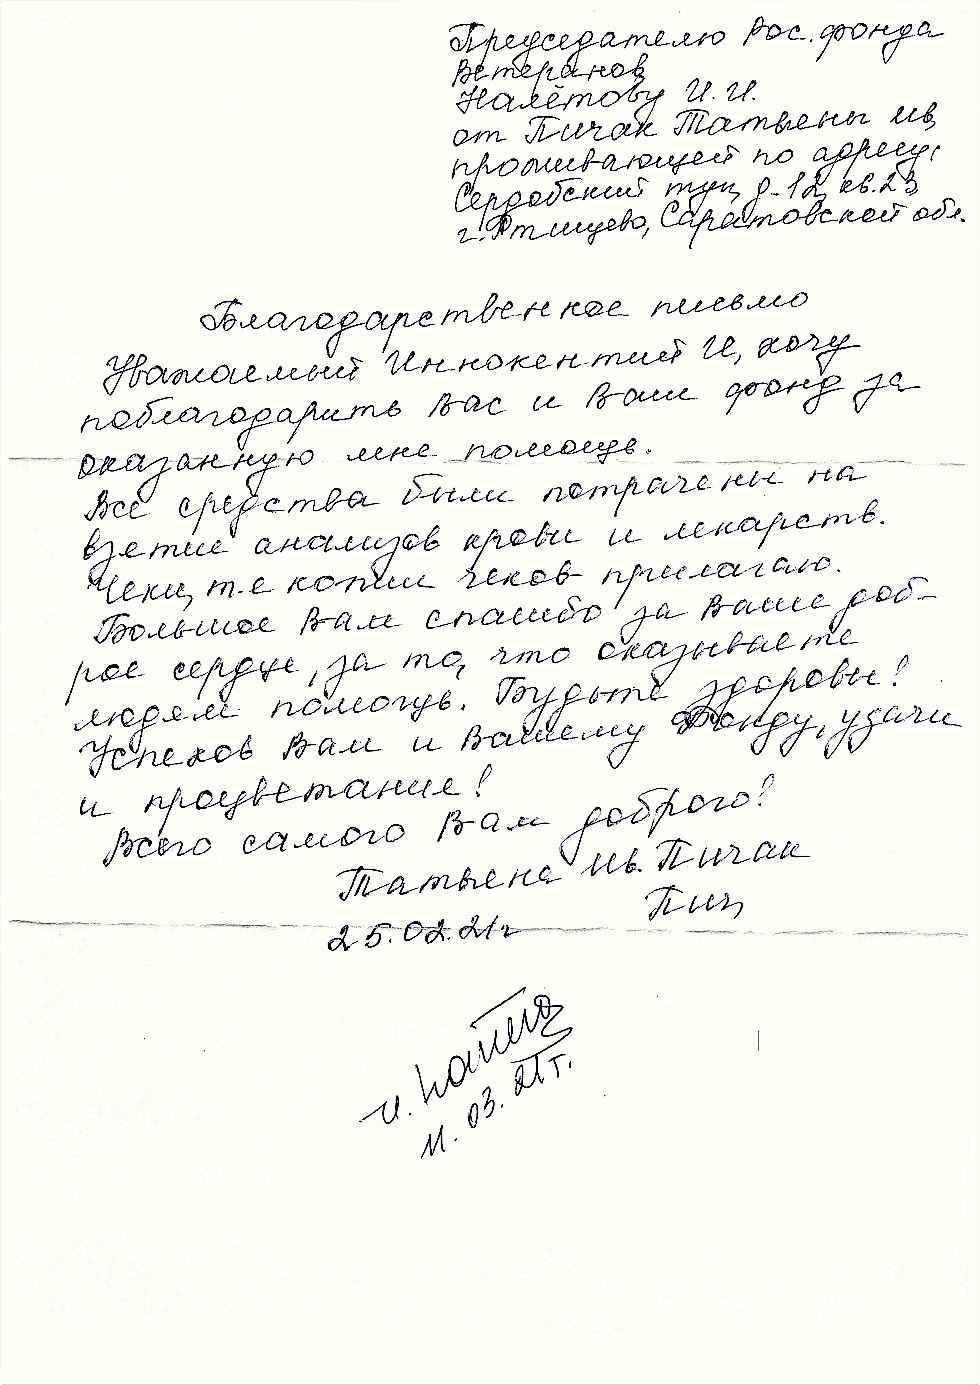 Председателю Рос. фонда
Ветеранов
Налётову И.И.
от Пичак Татьяны Ив,
проживающей по адресу:
Сердобский туп, д-12, кв.23,
г. Ртищево, Саратовской обл.
Благодарственное письмо
Уважаемый Иннокентий И, хочу
поблагодарить Вас и Ваш фонд за
оказанную мне помощь.
Все средства были потрачены на
взятие анализов крови и лекарств.
Чеки, т.е копии чеков прилагаю.
Большое Вам спасибо за Ваше доб-
рое сердце, за то, что оказываете
людям помощь. Будьте здоровы!
Успехов Вам и Вашему Фонду, удачи
и процветание!
Всего самого Вам доброго!
Татьяна Ив. Пичак
Пич
25.02.21г
11.03.21г.